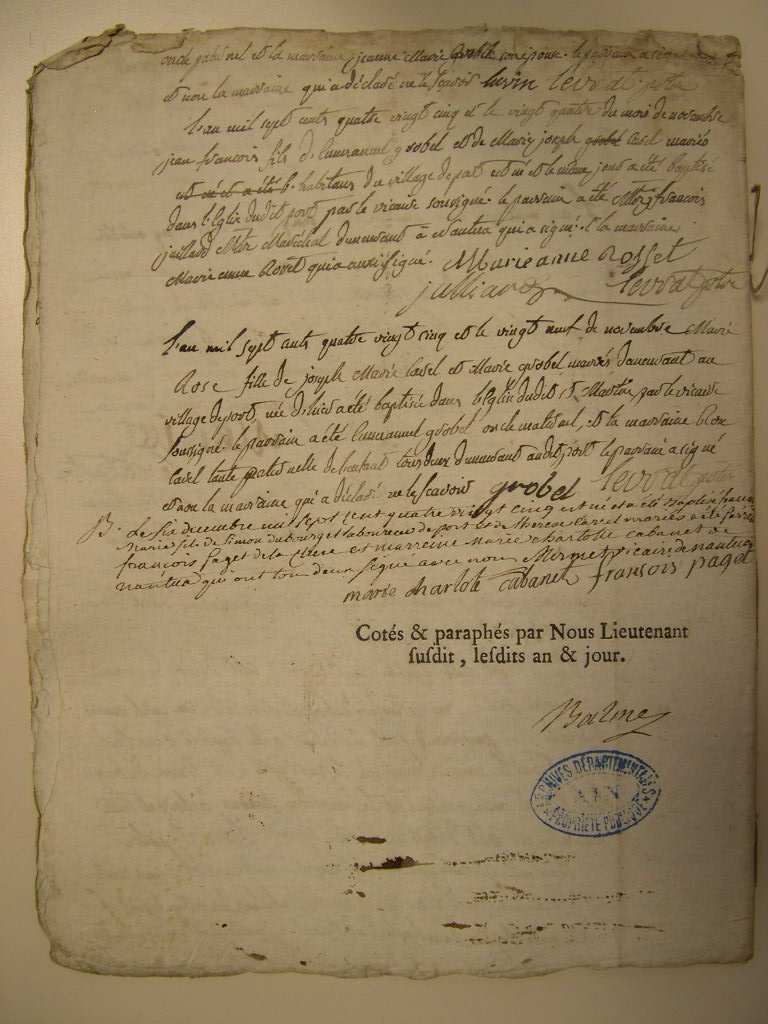 oncle paternel et la marraine jeanne Marie grobel son épouse. le parrain a signé
et non la marraine qui a déclaré ne le scavoir levrat ptre
L'an mil sept cents quatre vingt cinq et le vingt quatre du mois de novembre
jean françois fils d'Emmanuel grobel et de Marie joseph grobel Cavel mariés
est né et a été b. habitans du village de port est né et le même jour a été baptisé
dans l'Eglise dudit port par le vicaire soussigné. le parrain a été françois
juillard Maréchal demeurant à Nantua qui a signé. et la marraine
Marie anne Rosset qui a aussi signé. Marie anne Rosset
juilliard levrat ptre
L'an mil sept cents quatre vingt cinq et le vingt neuf de novembre Marie
Rose fille de joseph Marie Cavel et Marie grobel mariés demeurant au
village de port, née d'hier a été baptisée dans l'Eglise dudit St Martin par le vicaire
soussigné. le parrain a été Emmanuel grobel oncle maternel, et la marraine Rose
Cavel tante paternelle de l'enfant tous deux demeurant audit port le parrain a signé
et non la marraine qui a déclaré ne le scavoir grobel levrat ptre
B. Le six decembre mil sept cent quatre vingt cinq est né et a été baptisé françois
Marie fils de Simon dubourg et laboureur de port et de Cavel mariés a été parrain
françois paget de la et marreine marie charlotte cabanet de
nantua qui ont tous deux signé avec nous Mermet vicaire de nantua
marie charlote Cabanet françois paget
Cotés & paraphés par Nous Lieutenant
ſuſdit, leſdits an & jour.
Balme
ARCHIVES DÉPARTEMENTALES
AIN
PROPRIÉTÉ PUBLIQUE